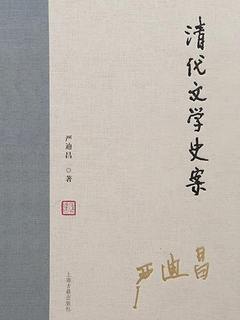 清代文学史案
严迪昌 著
上海古籍出版社
严迪昌